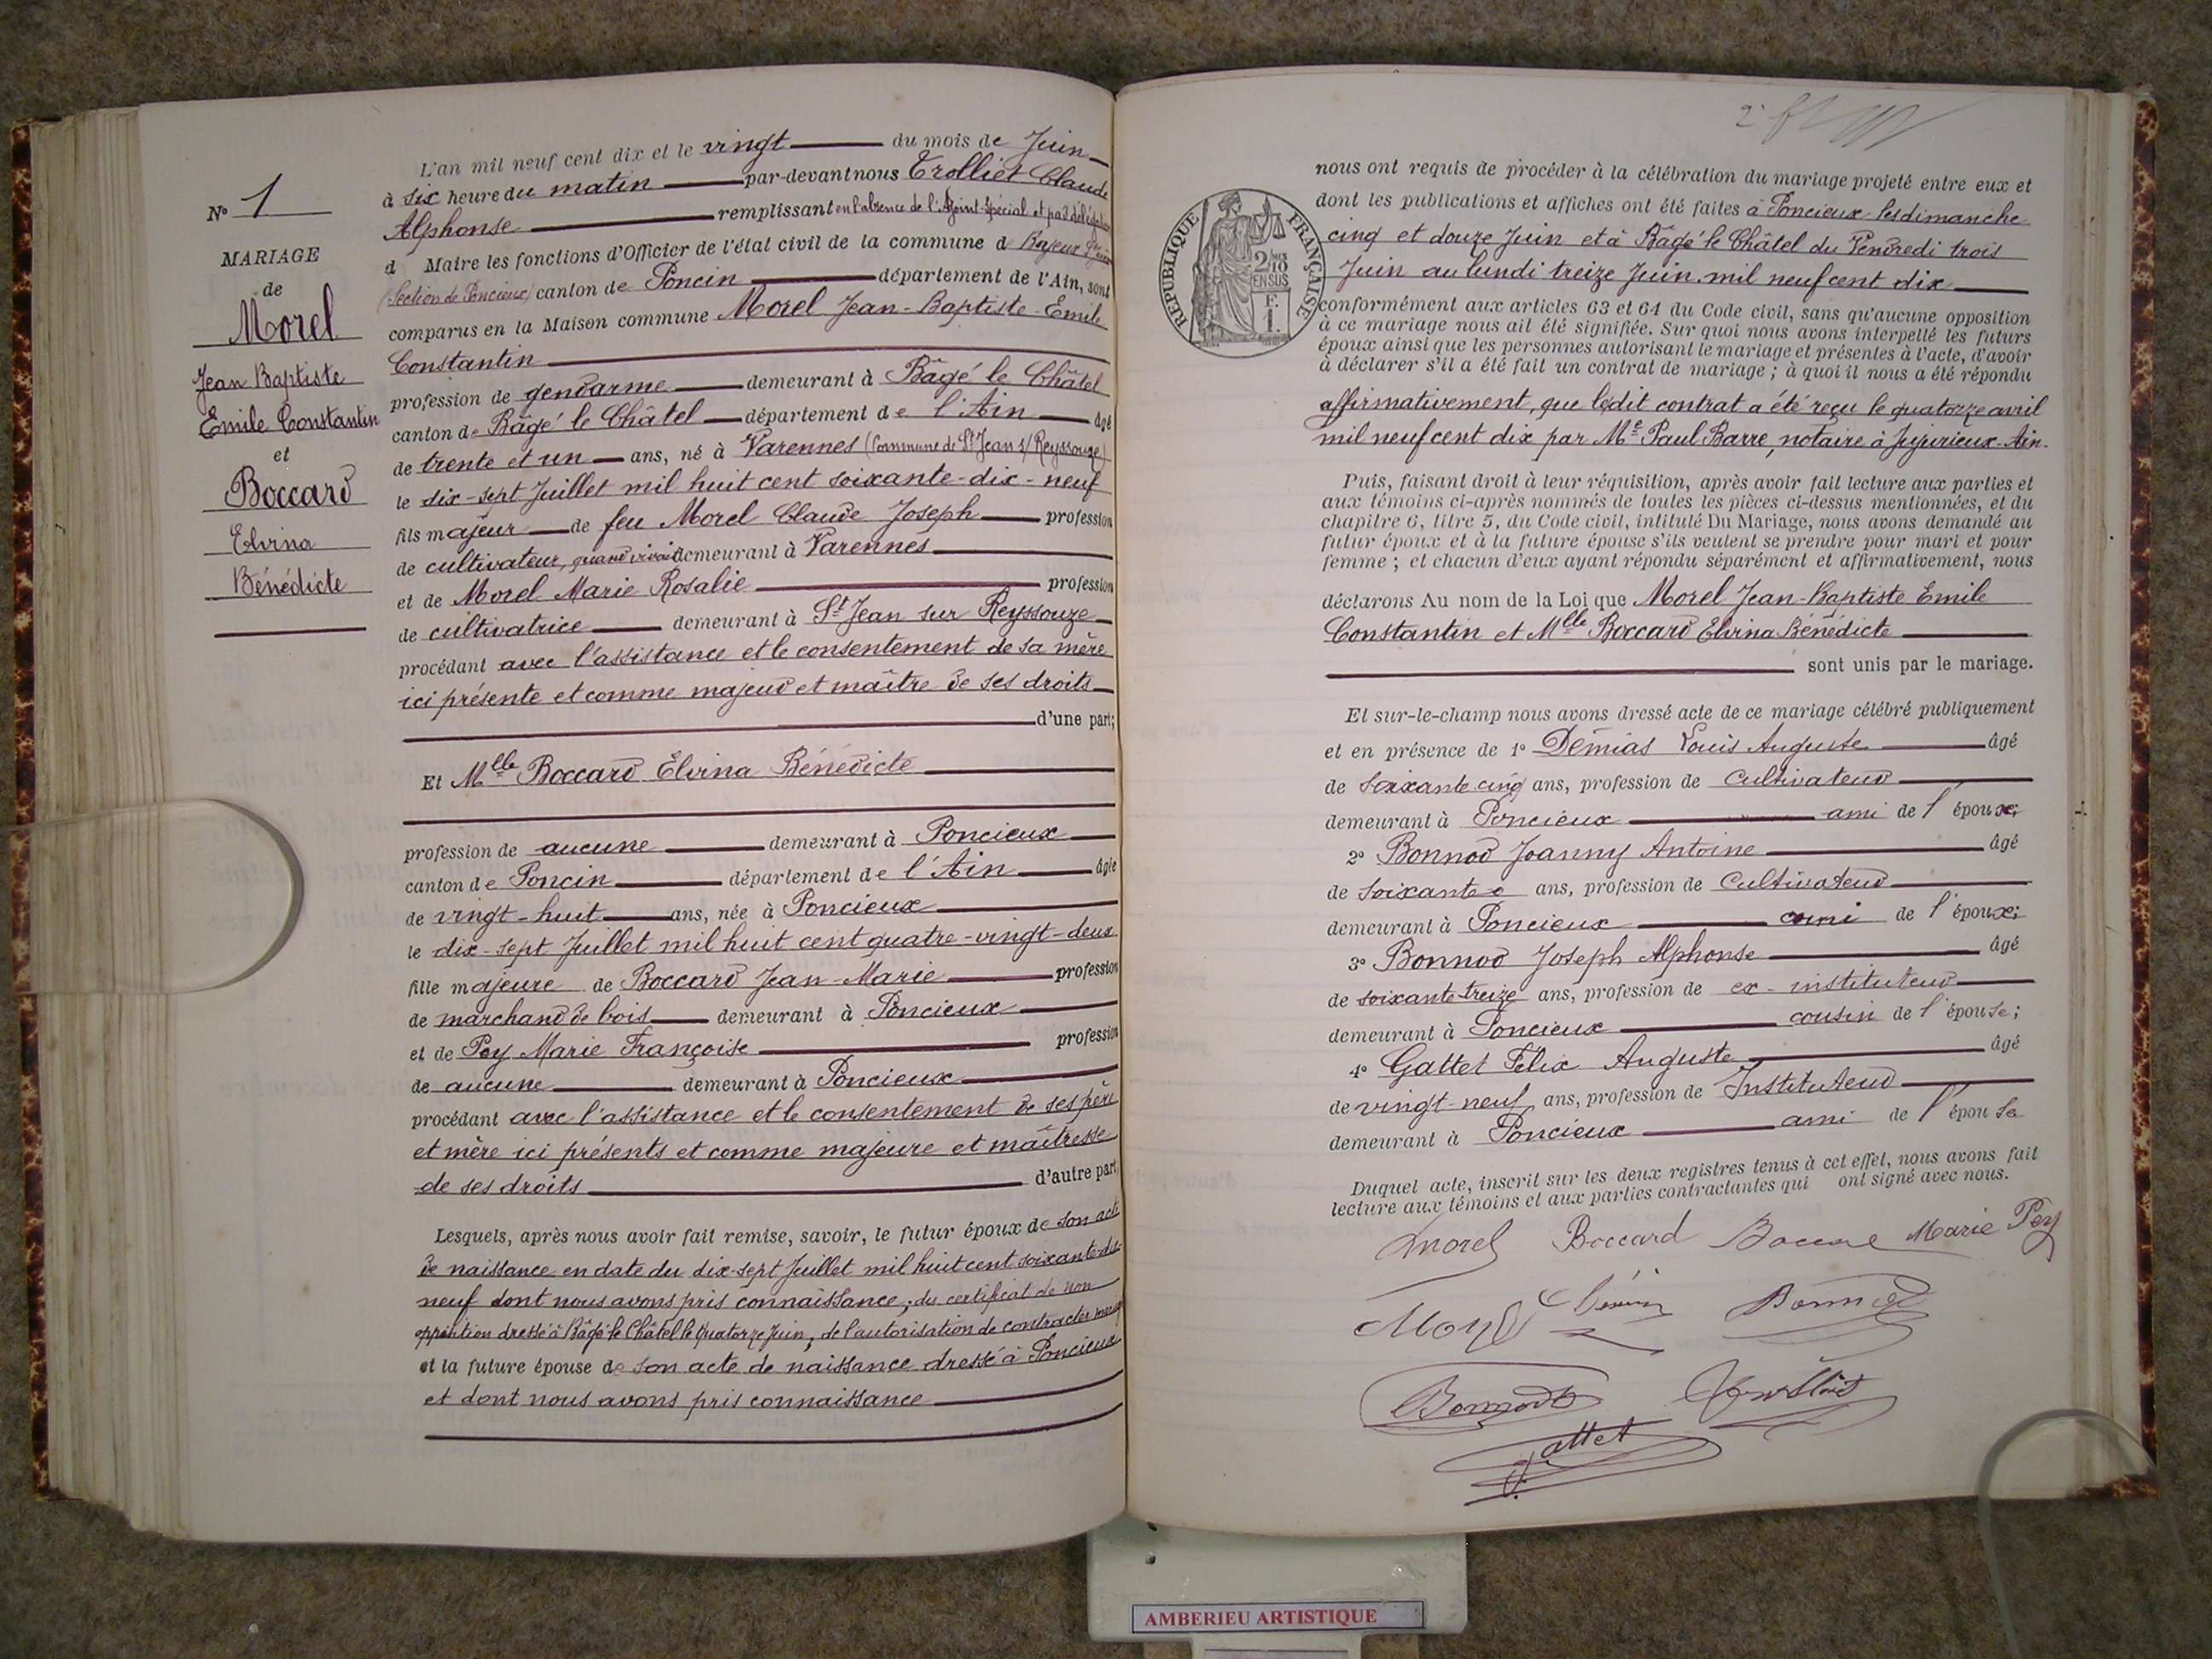 N° 1
MARIAGE
de
Morel
Jean Baptiste
Emile Constantin
et
Boccard
Elvina
Bénédicte
L'an mil neuf cent dix et le vingt du mois de Juin
à six heure du matin par-devant nous Trolliet Claude
Alphonse remplissant en l'absence de l'Adjoint Spécial et par délégation
d Maire les fonctions d'Officier de l'état civil de la commune d
(Section de Poncieux) canton de Poncin département de l'Ain, sont
comparus en la Maison commune Morel Jean-Baptiste-Emile
Constantin
profession de gendarme demeurant à Bâgé le Châtel
canton de Bâgé le Châtel département de l'Ain âgé
de trente et un ans, né à Varennes (Commune de St Jean s/ Reyssouze)
le dix-sept Juillet mil huit cent soixante-dix-neuf
fils majeur de feu Morel Claude Joseph profession
de cultivateur, quand vivait demeurant à Varennes
et de Morel Marie Rosalie profession
de cultivatrice demeurant à St Jean sur Reyssouze
procédant avec l'assistance et le consentement de sa mère
ici présente et comme majeur et maître de ses droits
d'une part;
Et Mlle Boccard Elvina Bénédicte
profession de aucune demeurant à Poncieux
canton de Poncin département de l'Ain âgée
de vingt-huit ans, née à Poncieux
le dix-sept Juillet mil huit cent quatre-vingt-deux
fille majeure de Boccard Jean-Marie profession
de marchand de bois demeurant à Poncieux
et de Pey Marie Françoise profession
de aucune demeurant à Poncieux
procédant avec l'assistance et le consentement de ses père
et mère ici présents et comme majeure et maîtresse
de ses droits d'autre part
Lesquels, après nous avoir fait remise, savoir, le futur époux de son acte
de naissance en date du dix-sept Juillet mil huit cent soixante-dix
neuf dont nous avons pris connaissance; du certificat de non
opposition dressé à Bâgé le Châtel le quatorze Juin, de l'autorisation de contracter mariage
et la future épouse de son acte de naissance dressé à Poncieux
et dont nous avons pris connaissance
RÉPUBLIQUE FRANÇAISE
2/10
EN SUS
F.
1.
nous ont requis de procéder à la célébration du mariage projeté entre eux et
dont les publications et affiches ont été faites à Poncieux les dimanche
cinq et douze Juin et à Bâgé le Châtel du Vendredi trois
Juin au lundi treize Juin mil neuf cent dix
conformément aux articles 63 et 64 du Code civil, sans qu'aucune opposition
à ce mariage nous ait été signifiée. Sur quoi nous avons interpellé les futurs
époux ainsi que les personnes autorisant le mariage et présentes à l'acte, d'avoir
à déclarer s'il a été fait un contrat de mariage; à quoi il nous a été répondu
affirmativement, que ledit contrat a été reçu le quatorze avril
mil neuf cent dix par Me Paul Barre, notaire à Jujurieux-Ain.
Puis, faisant droit à leur réquisition, après avoir fait lecture aux parties et
aux témoins ci-après nommés de toutes les pièces ci-dessus mentionnées, et du
chapitre 6, titre 5, du Code civil, intitulé Du Mariage, nous avons demandé au
futur époux et à la future épouse s'ils veulent se prendre pour mari et pour
femme; et chacun d'eux ayant répondu séparément et affirmativement, nous
déclarons Au nom de la Loi que Morel Jean-Baptiste Emile
Constantin et Mlle Boccard Elvina Bénédicte
sont unis par le mariage.
Et sur-le-champ nous avons dressé acte de ce mariage célébré publiquement
et en présence de 1° Démias Louis Auguste âgé
de soixante-cinq ans, profession de cultivateur
demeurant à Poncieux ami de l'époux;
2° Bonnod Joanny Antoine âgé
de soixante ans, profession de cultivateur
demeurant à Poncieux ami de l'époux;
3° Bonnod Joseph Alphonse âgé
de soixante-treize ans, profession de ex-instituteur
demeurant à Poncieux cousin de l'épouse;
4° Gattet Félix Auguste âgé
de vingt-neuf ans, profession de Instituteur
demeurant à Poncieux ami de l'épouse
Duquel acte, inscrit sur les deux registres tenus à cet effet, nous avons fait
lecture aux témoins et aux parties contractantes qui ont signé avec nous.
Morel Boccard Boccard Marie Pey
Morel Bonnod
Bonnod Trolliet
Gattet
AMBERIEU ARTISTIQUE